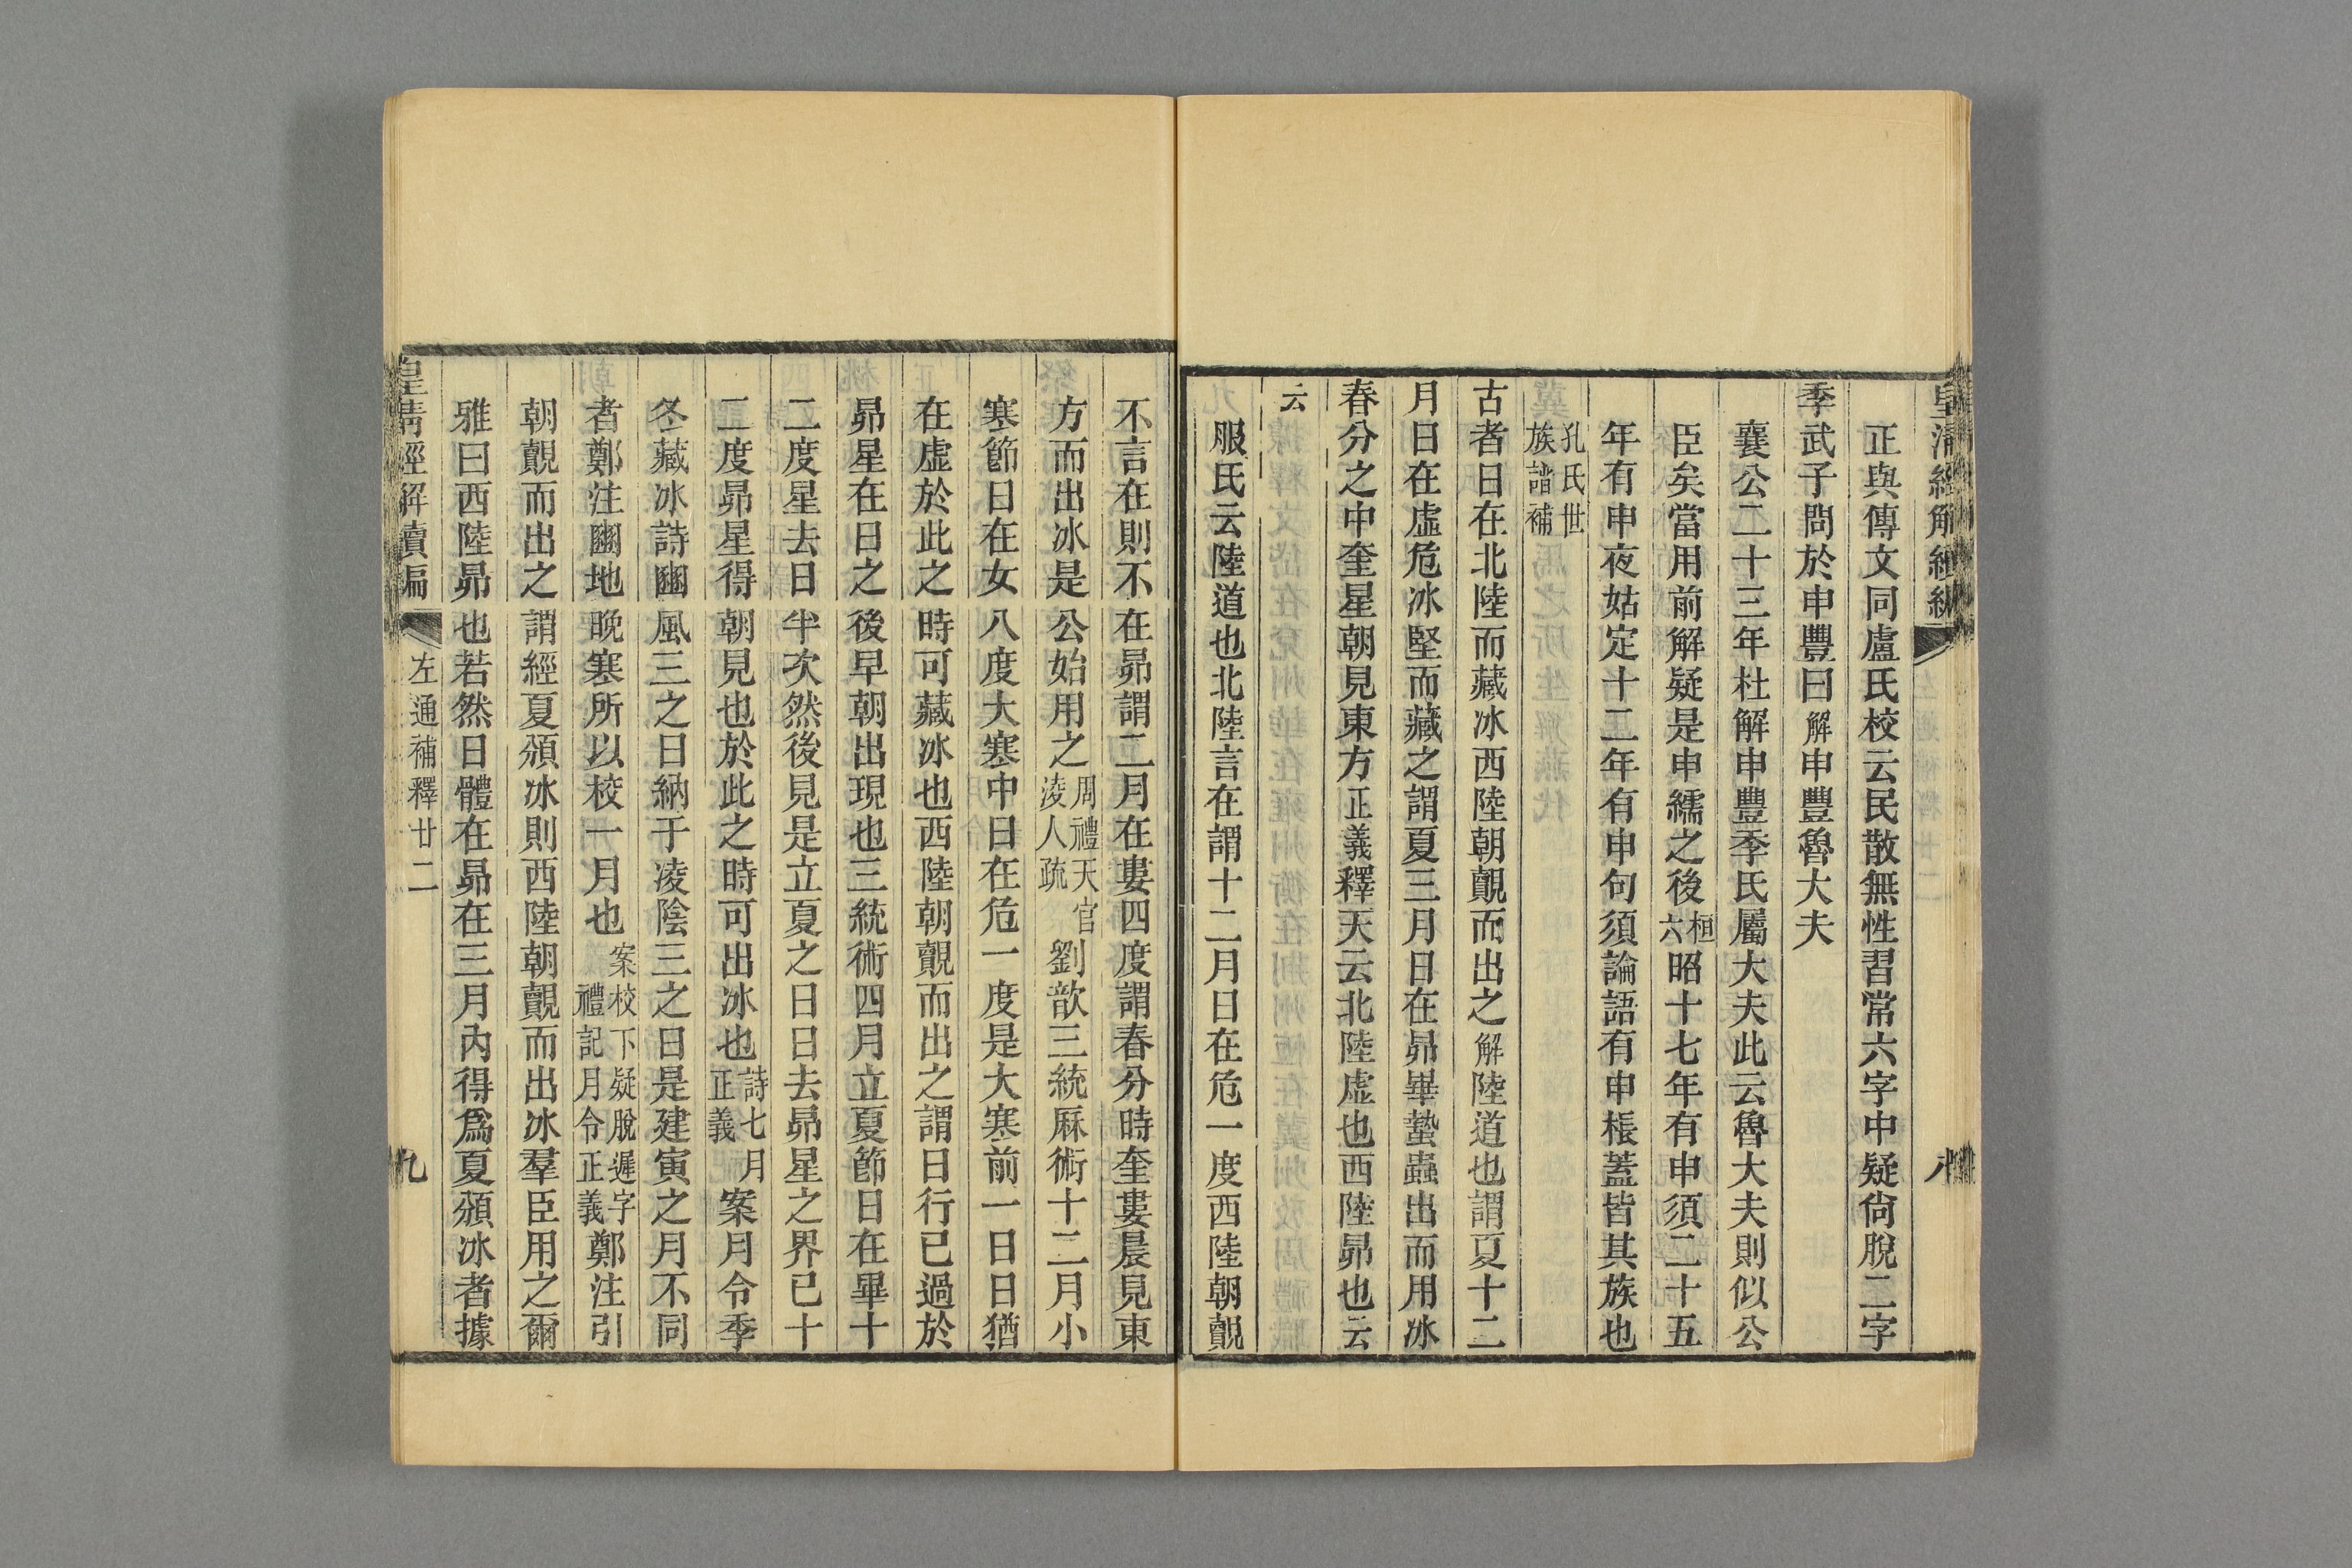 正與傳文同盧氏校云民散無性習常六字中疑尙脫二字
季武子問於申豐曰解申豐魯大夫
襄公二十三年杜解申豐季氏屬大夫此云魯大夫則似公
臣矣當用前解疑是申繻之後桓六昭十七年有申須二十五
年有申夜姑定十二年有申句須論語有申棖蓋皆其族也
孔氏世族譜補
古者日在北陸而藏冰西陸朝覿而出之解陸道也謂夏十二
月日在虛危冰堅而藏之謂夏三月日在昴畢蟄蟲出而用冰
春分之中奎星朝見東方正義釋天云北陸虛也西陸昴也云
云
服氏云陸道也北陸言在謂十二月日在危一度西陸朝覿
不言在則不在昴謂二月在婁四度謂春分時奎婁晨見東
方而出冰是公始用之周禮天官淩人疏劉歆三統厤術十二月小
寒節日在女八度大寒中日在危一度是大寒前一日日猶
在虛於此之時可藏冰也西陸朝覿而出之謂日行已過於
昴星在日之後早朝出現也三統術四月立夏節日在畢十
二度星去日半次然後見是立夏之日日去昴星之界已十
二度昴星得朝見也於此之時可出冰也詩七月正義案月令季
冬藏冰詩豳風三之日納于凌陰三之日是建寅之月不同
者鄭注豳地晚寒所以校一月也案校下疑脫遲字禮記月令正義鄭注引
朝覿而出之謂經夏頒冰則西陸朝覿而出冰羣臣用之爾
雅曰西陸昴也若然日體在昴在三月內得爲夏頒冰者據
皇清經解續編
左通補釋廿二
九